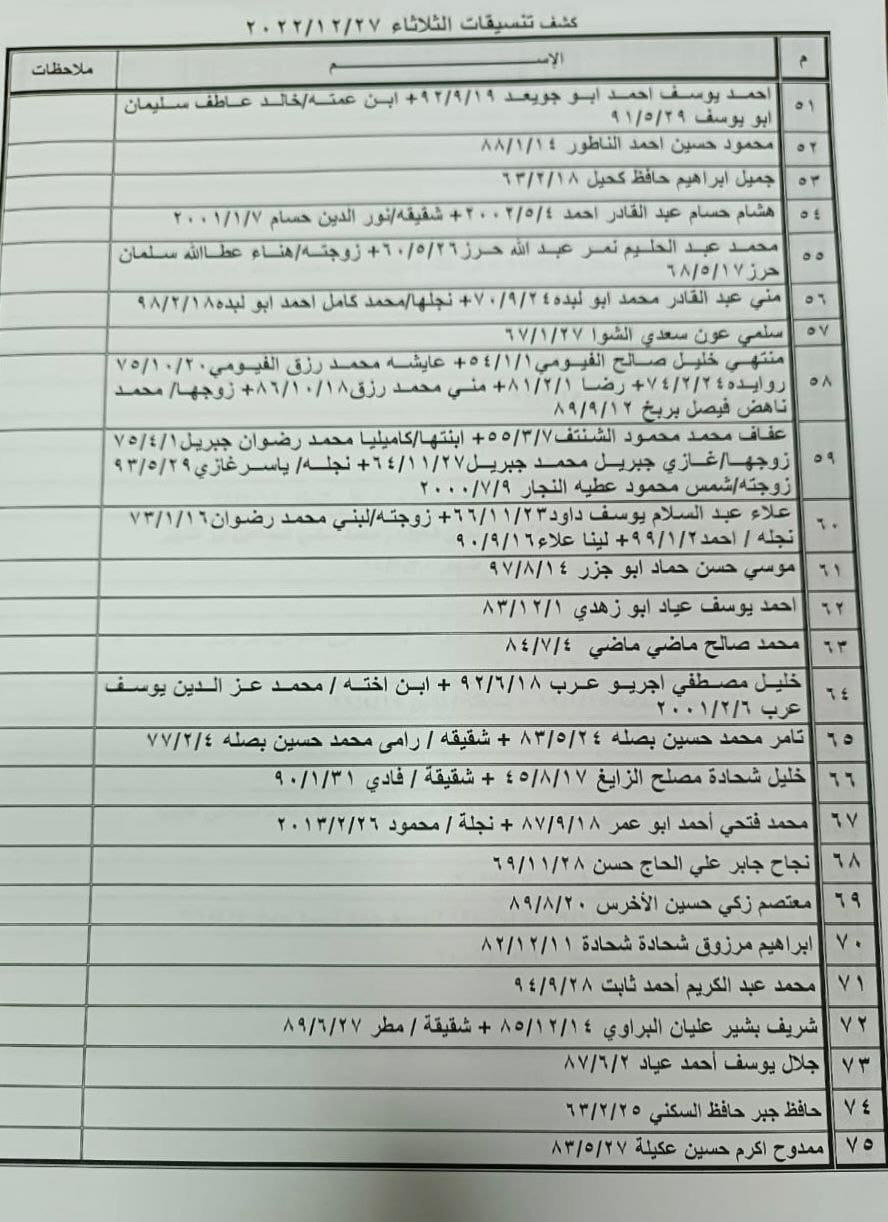 كشف تنسيقات الثلاثاء ٢٠٢٢/١٢/٢٧
م الإســـــــــم ملاحظات
٥١ احمد يوسف احمد ابو جويعد ٩٢/٩/١٩+ ابن عمته/خالد عاطف سليمان
ابو يوسف ٩١/٥/٢٩
٥٢ محمود حسين احمد الناطور ٨٨/١/١٤
٥٣ جميل ابراهيم حافظ كحيل ٦٣/٢/١٨
٥٤ هشام حسام عبد القادر احمد ٢٠٠٢/٥/٤+ شقيقه/نور الدين حسام ٢٠٠١/١/٧
٥٥ محمد عبد الحليم نمر عبد الله حرز٦٠/٥/٢٦+ زوجته/هناء عطاالله سلمان
حرز٦٨/٥/١٧
٥٦ مني عبد القادر محمد ابو لبده٧٠/٩/٢٤+ نجلها/محمد كامل احمد ابو لبده٩٨/٢/١٨
٥٧ سلمي عون سعدي الشوا ٦٧/١/٢٧
٥٨ منتهي خليل صالح الفيومي٥٤/١/١+ عايشه محمد رزق الفيومي٧٥/١٠/٢٠
روايده٧٤/٢/٢٤+ رضا ٨١/٢/١+ مني محمد رزق٨٦/١٠/١٨+ زوجها/ محمد
ناهض فيصل بربخ ٨٩/٩/١٢
٥٩ عفاف محمد محمود الشنتف٥٥/٣/٧+ ابنتها/كاميليا محمد رضوان جبريل٧٥/٤/١
زوجها/غازي جبريل محمد جبريل٦٤/١١/٢٧+ نجله/ ياسرغازي٩٣/٥/٢٩
زوجته/شمس محمود عطيه النجار ٢٠٠٠/٧/٩
٦٠ علاء عبد السلام يوسف داود٦٦/١١/٢٣+ زوجته/لبني محمد رضوان٧٣/١/١٦
نجله / احمد٩٩/١/٢+ لينا علاء٩٠/٩/١٦
٦١ موسي حسن حماد ابو جزر ٩٧/٨/١٤
٦٢ احمد يوسف عياد ابو زهدي ٨٣/١٢/١
٦٣ محمد صالح ماضي ماضي ٨٤/٧/٤
٦٤ خليل مصطفي اجريو عرب ٩٢/٦/١٨ + ابن اخته / محمد عز الدين يوسف
عرب ٢٠٠١/٢/٦
٦٥ تامر محمد حسين بصله ٨٣/٥/٢٤ + شقيقه / رامى محمد حسين بصله ٧٧/٢/٤
٦٦ خليل شحادة مصلح الزايغ ٤٥/٨/١٧ + شقيقة / فادي ٩٠/١/٣١
٦٧ محمد فتحي أحمد ابو عمر ٨٧/٩/١٨ + نجلة / محمود ٢٠١٣/٢/٢٦
٦٨ نجاح جابر علي الحاج حسن ٦٩/١١/٢٨
٦٩ معتصم زكي حسين الأخرس ٨٩/٨/٢٠
٧٠ ابراهيم مرزوق شحادة شحادة ٨٢/١٢/١١
٧١ محمد عبد الكريم أحمد ثابت ٩٤/٩/٢٨
٧٢ شريف بشير عليان البراوي ٨٥/١٢/١٤ + شقيقة / مطر ٨٩/٦/٢٧
٧٣ جلال يوسف أحمد عياد ٨٧/٦/٢
٧٤ حافظ جبر حافظ السكني ٦٣/٢/٢٥
٧٥ ممدوح اكرم حسين عكيلة ٨٣/٥/٢٧